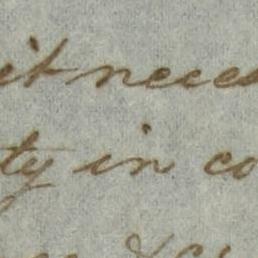 it neces
ty in co